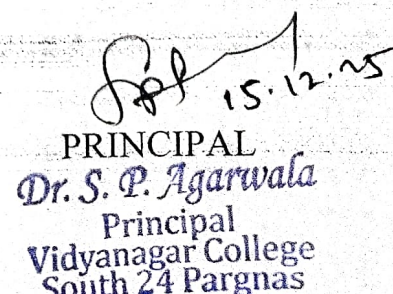 15.12.25
PRINCIPAL
Dr. S. P. Agarwala
Principal
Vidyanagar College
South 24 Pargnas